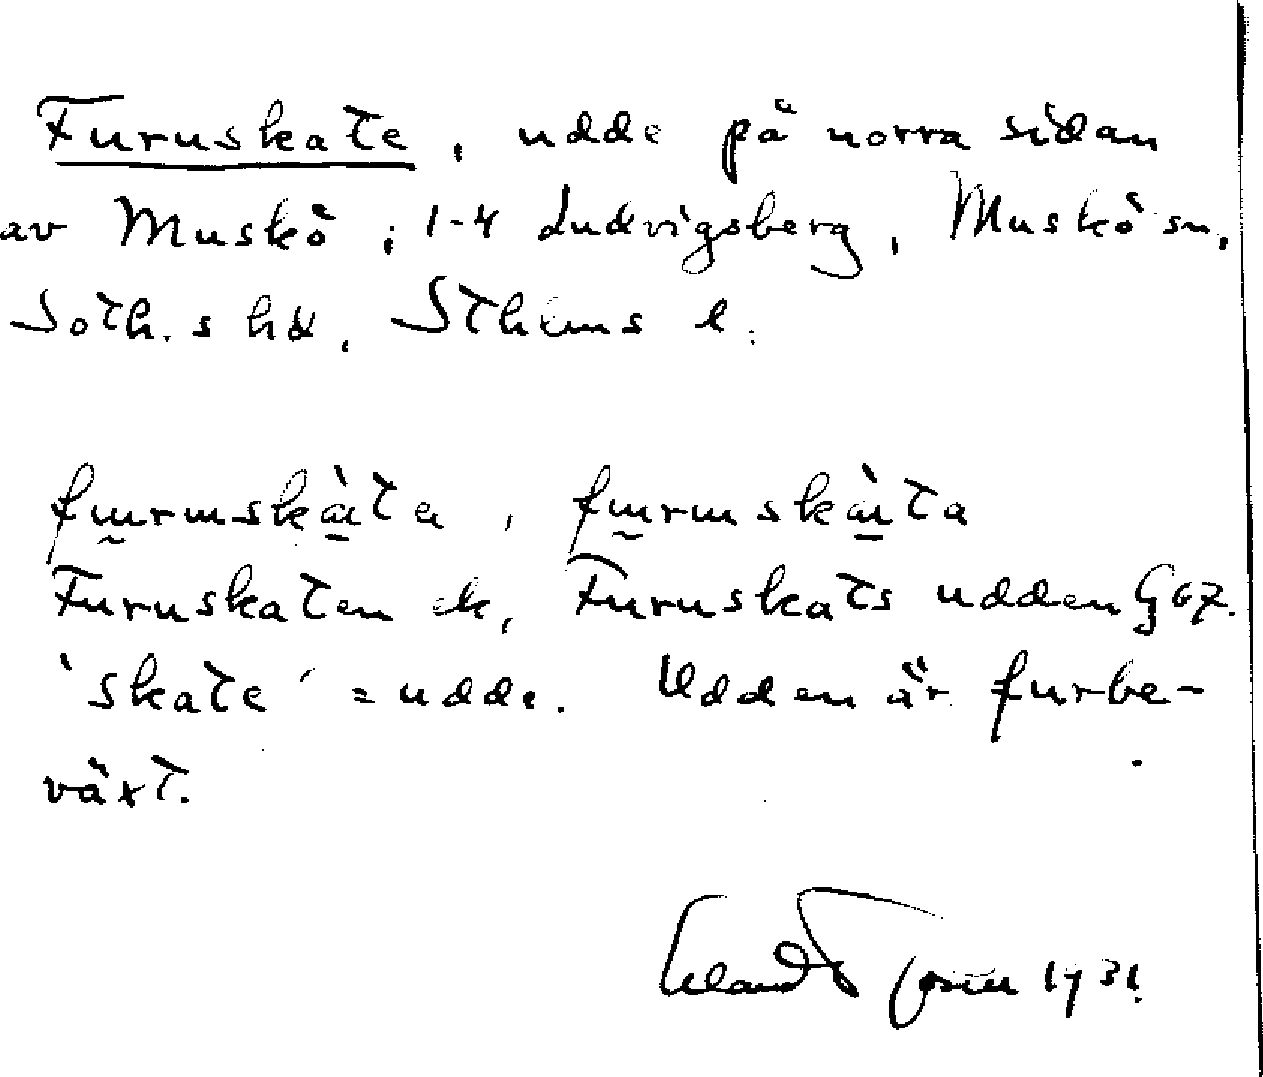 Furuskate, udde på norra sidan
av Muskö; 1-4 Ludvigsberg, Muskö sn,
Soth.s hd, Sthlms l.
Furuskaten ek, Furuskats udden G 67.
'skate' = udde. Udden är furbe-
växt.
1931.